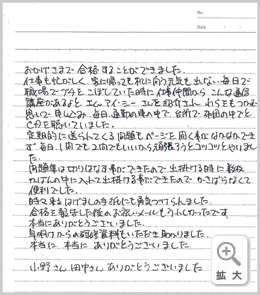 No.
Date
おかげさまで合格することができました。
仕事も忙がしく、家に帰っても机に向う気力も出ない毎日で
職場でグチをこぼしていた時に仕事仲間から こんな通信
講座があるよと エム・アイ・シーさんを紹介され、わらをもつかむ
思いで申し込み、毎日、通勤の車の中で、台所で、布団の中でと
CDを聴いていました。
定期的に送られてくる問題もページを開く事になかなかできず
毎日、1問でも2問でもいいから頑張ろうとコツコツとやりま
した。
問題集は切りはなす事ができたので出掛ける時に数枚
かばんの中に入れて出掛ける事ができたので かさばらなくて
便利でした。
時々来るはげましの手紙にも勇気づけられました。
合格を報告した後のお祝いメールもうれしかったです。
本当にありがとうございました。
年明けからの研修資料もいただき助かりました。
本当に 本当に ありがとうございました。
小野さん 田中さん ありがとうございました
拡大